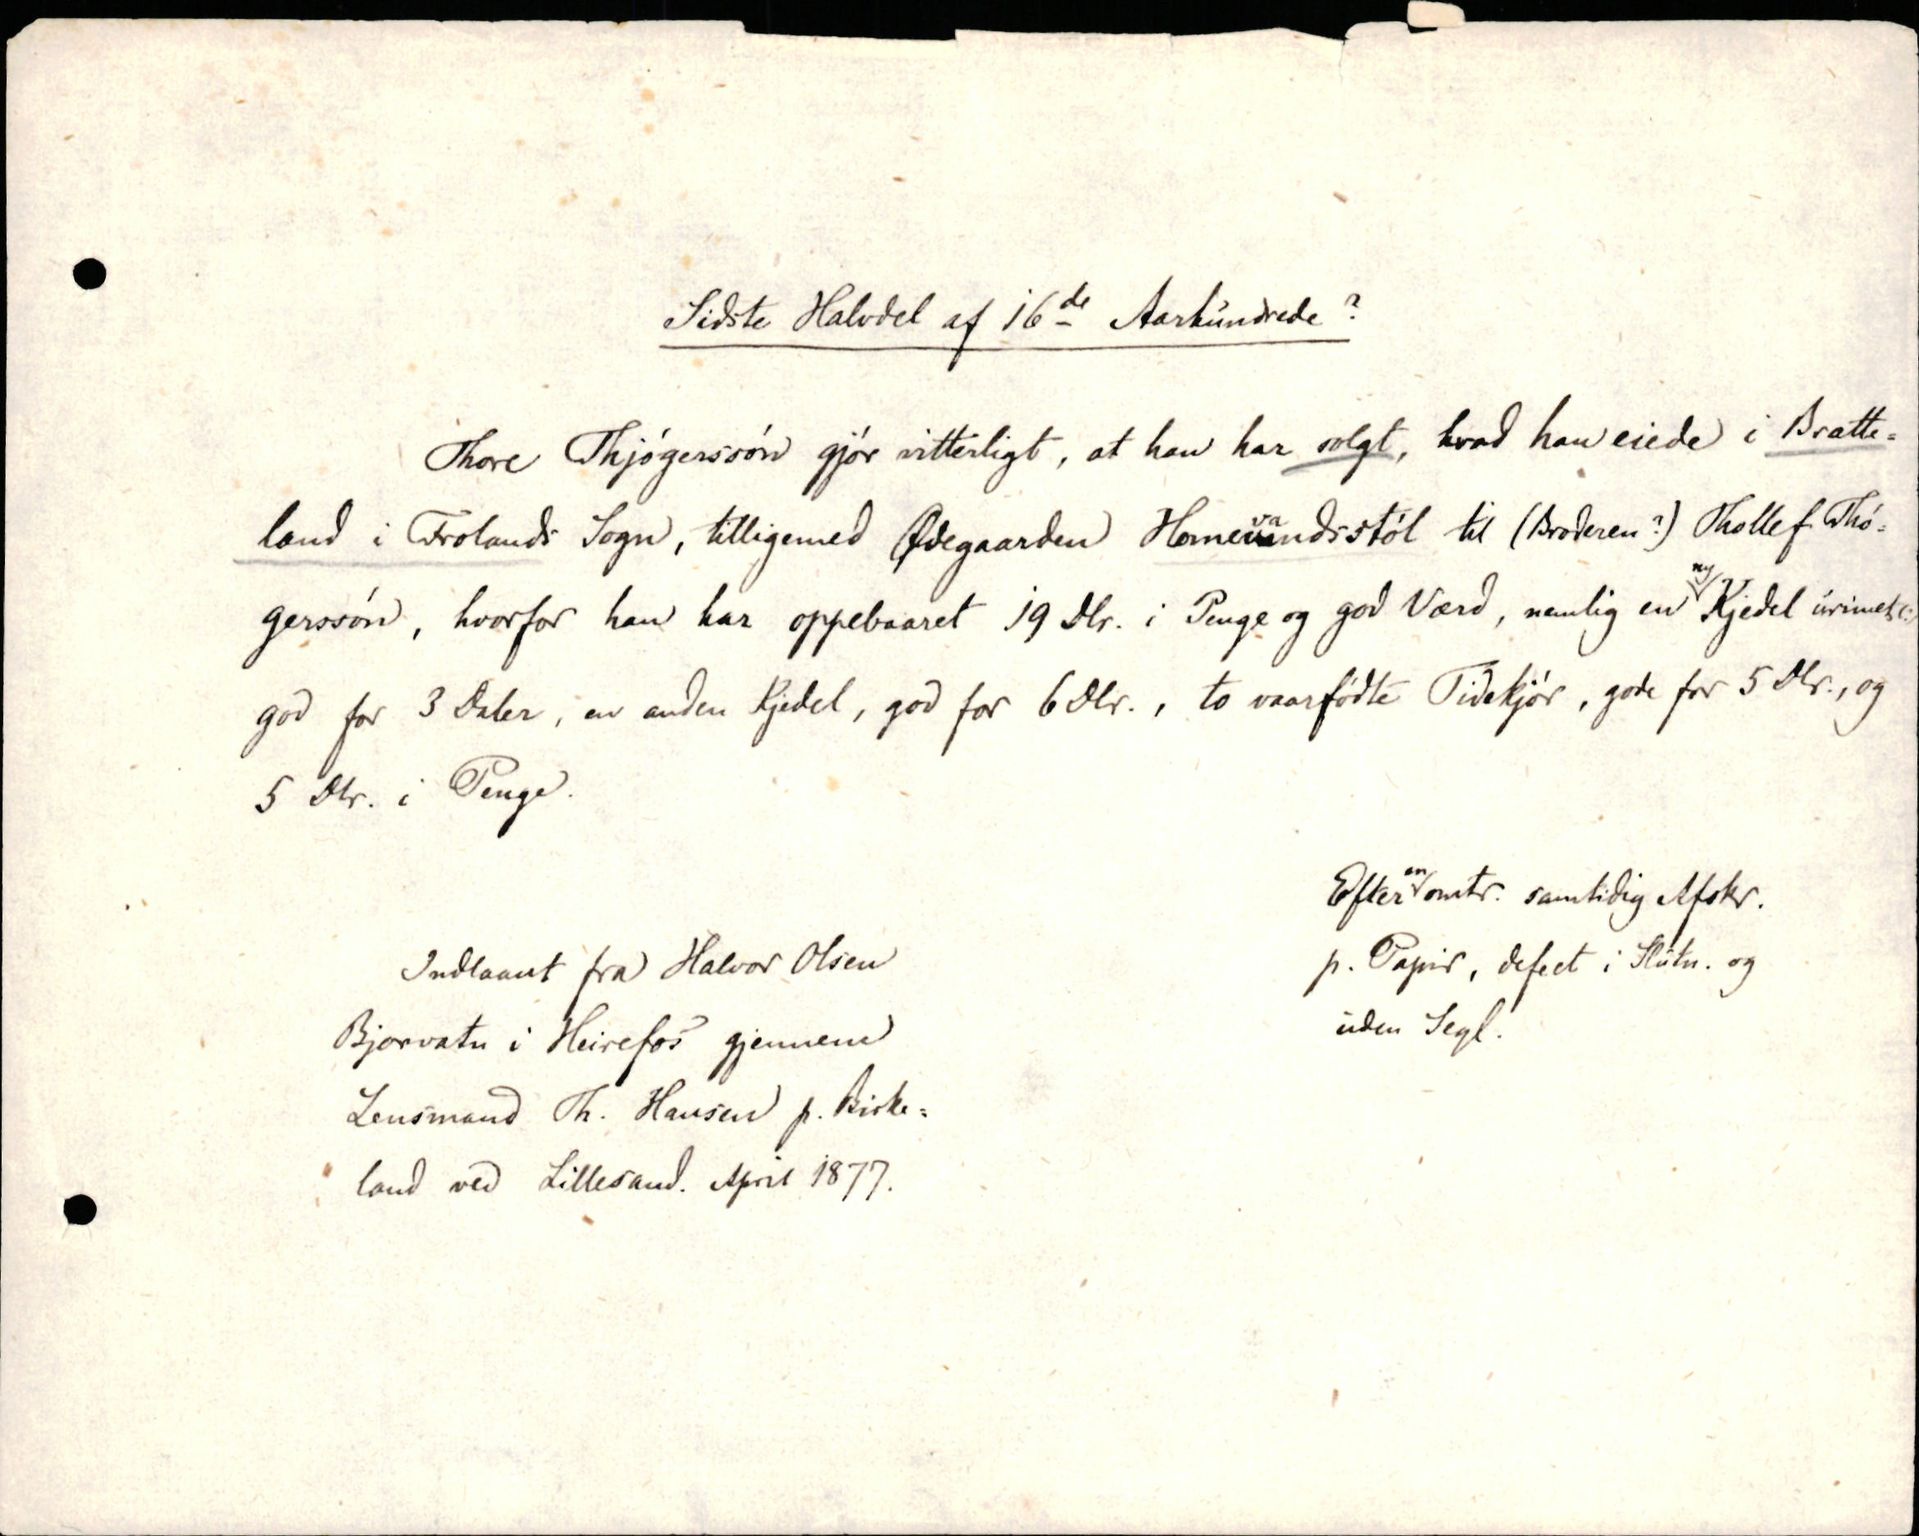 Sidste Halvdel af 16de Aarhundrede?
Thore Thjógerssón gjór vitterligt, at han har solgt, hvad han eiede i Bratte=
land i Frolands Sogn, tilligemed Ødegaarden Homevandsstól til (Broderen?) Thollef Thó=
gerssón, hvorfor han har oppebaaret 19 Dlr. i Penge og god Værd, nemlig en ny Kjedel urimet(:)
god for 3 Daler, en anden Kjedel, god for 6 Dlr., to vaarfódte Tidekjór, gode for 5 Dlr., og
5 Dlr. i Penge.
Efter en omtr. samtidig Afskr.
p. Papir, defect i Slutn. og
uden Segl.
Indlaant fra Halvor Olsen
Bjorvatn i Heirefos gjennem
Lensmand Th. Hansen p. Birke=
land ved Lillesand. April 1877.